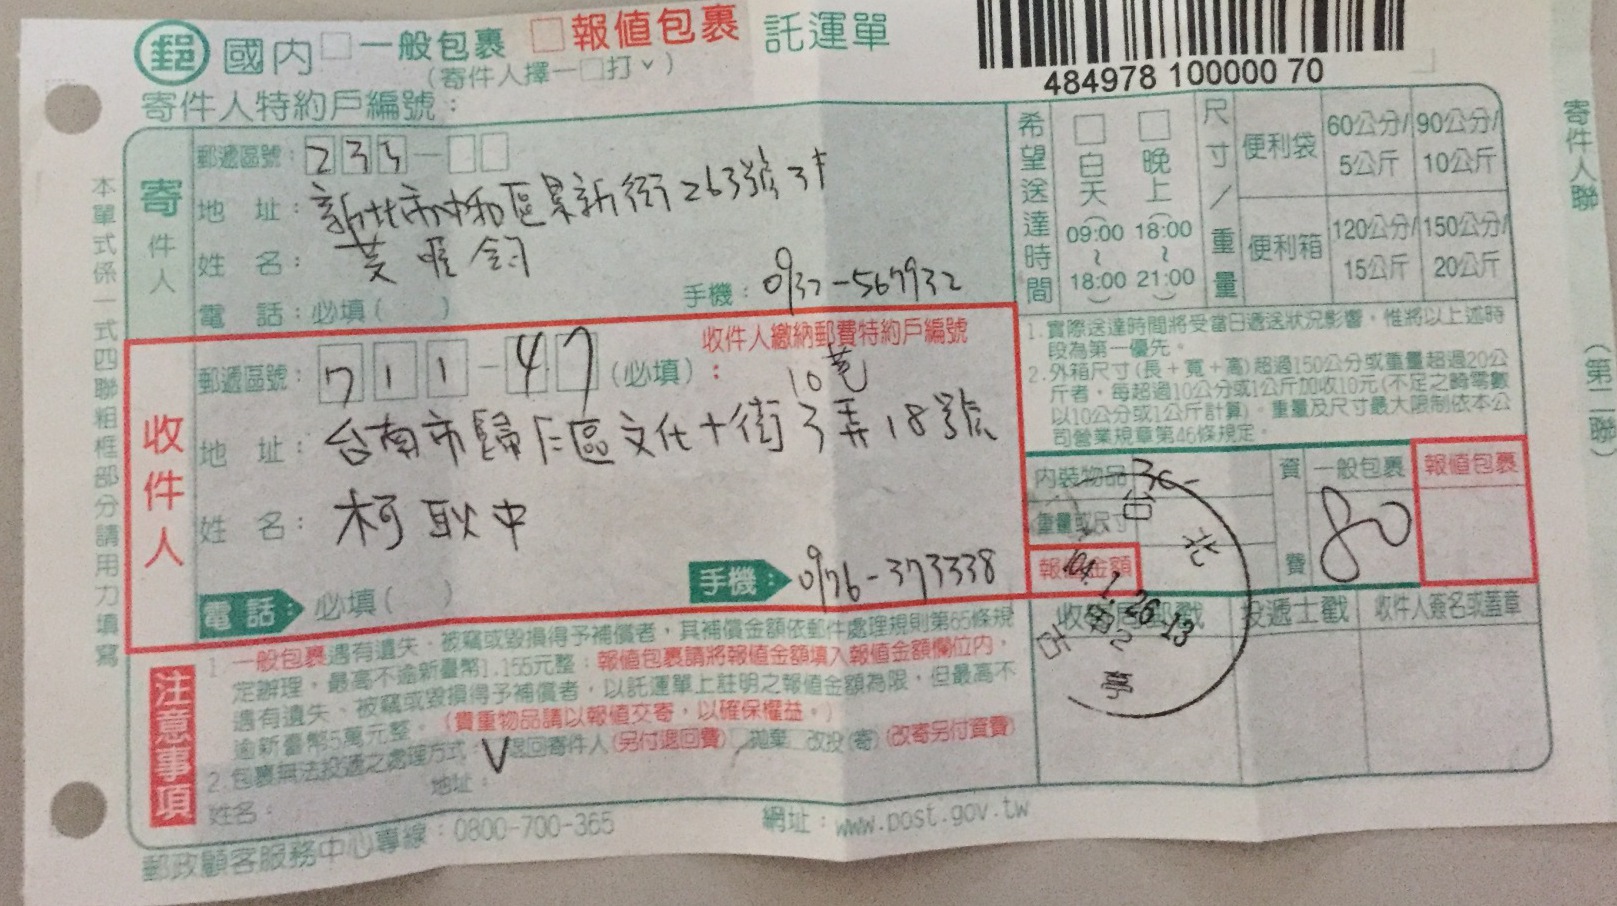 郵 國內□一般包裹 □報值包裹 託運單
(寄件人擇一□打ˇ)
484978 100000 70
寄件人特約戶編號：
寄件人
郵遞區號：233－□□
地 址：新北市中和區景新街263號3F
姓 名：
電 話：必填( )
手機：0937-567932
收件人
收件人繳納郵費特約戶編號：
郵遞區號：711－47(必填)
10芎
地 址：台南市歸仁區文化十街3弄18號
姓 名：柯耿中
電話：必填( )
手機：0976-373338
希望送達時間
□白天(09:00~18:00)
□晚上(18:00~21:00)
尺寸/重量
便利袋 60公分/5公斤 90公分/10公斤
便利箱 120公分/15公斤 150公分/20公斤
1.實際送達時間將受當日遞送狀況影響，惟將以上述時
段為第一優先。
2.外箱尺寸(長＋寬＋高)超過150公分或重量超過20公
斤者，每超過10公分或1公斤加收10元(不足之畸零數
以10公分或1公斤計算)。重量及尺寸最大限制依本公
司營業規章第46條規定。
內裝物品 3C
重量或尺寸
報值金額
資費
一般包裹 80
報值包裹
收寄局郵戳
投遞士戳
收件人簽名或蓋章
台北
104.1.26 13
古亭
注意事項
1.一般包裹遇有遺失、被竊或毀損得予補償者，其補償金額依郵件處理規則第65條規
定辦理，最高不逾新臺幣1,155元整；報值包裹請將報值金額填入報值金額欄位內，
遇有遺失、被竊或毀損得予補償者，以託運單上註明之報值金額為限，但最高不
逾新臺幣5萬元整。(貴重物品請以報值交寄，以確保權益。)
2.包裹無法投遞之處理方式：V退回寄件人(另付退回費)□拋棄□改投(寄)(改寄另付資費)
姓名： 地址：
郵政顧客服務中心專線：0800-700-365
網址：www.post.gov.tw
本單式係一式四聯粗框部分請用力填寫
寄件人聯
(第二聯)